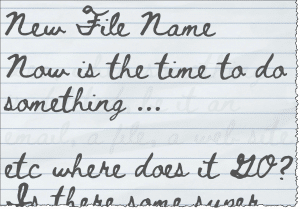 New File Name
Now is the time to do
something ...
email, a file, a web site
etc where does it GO?
Is there some super